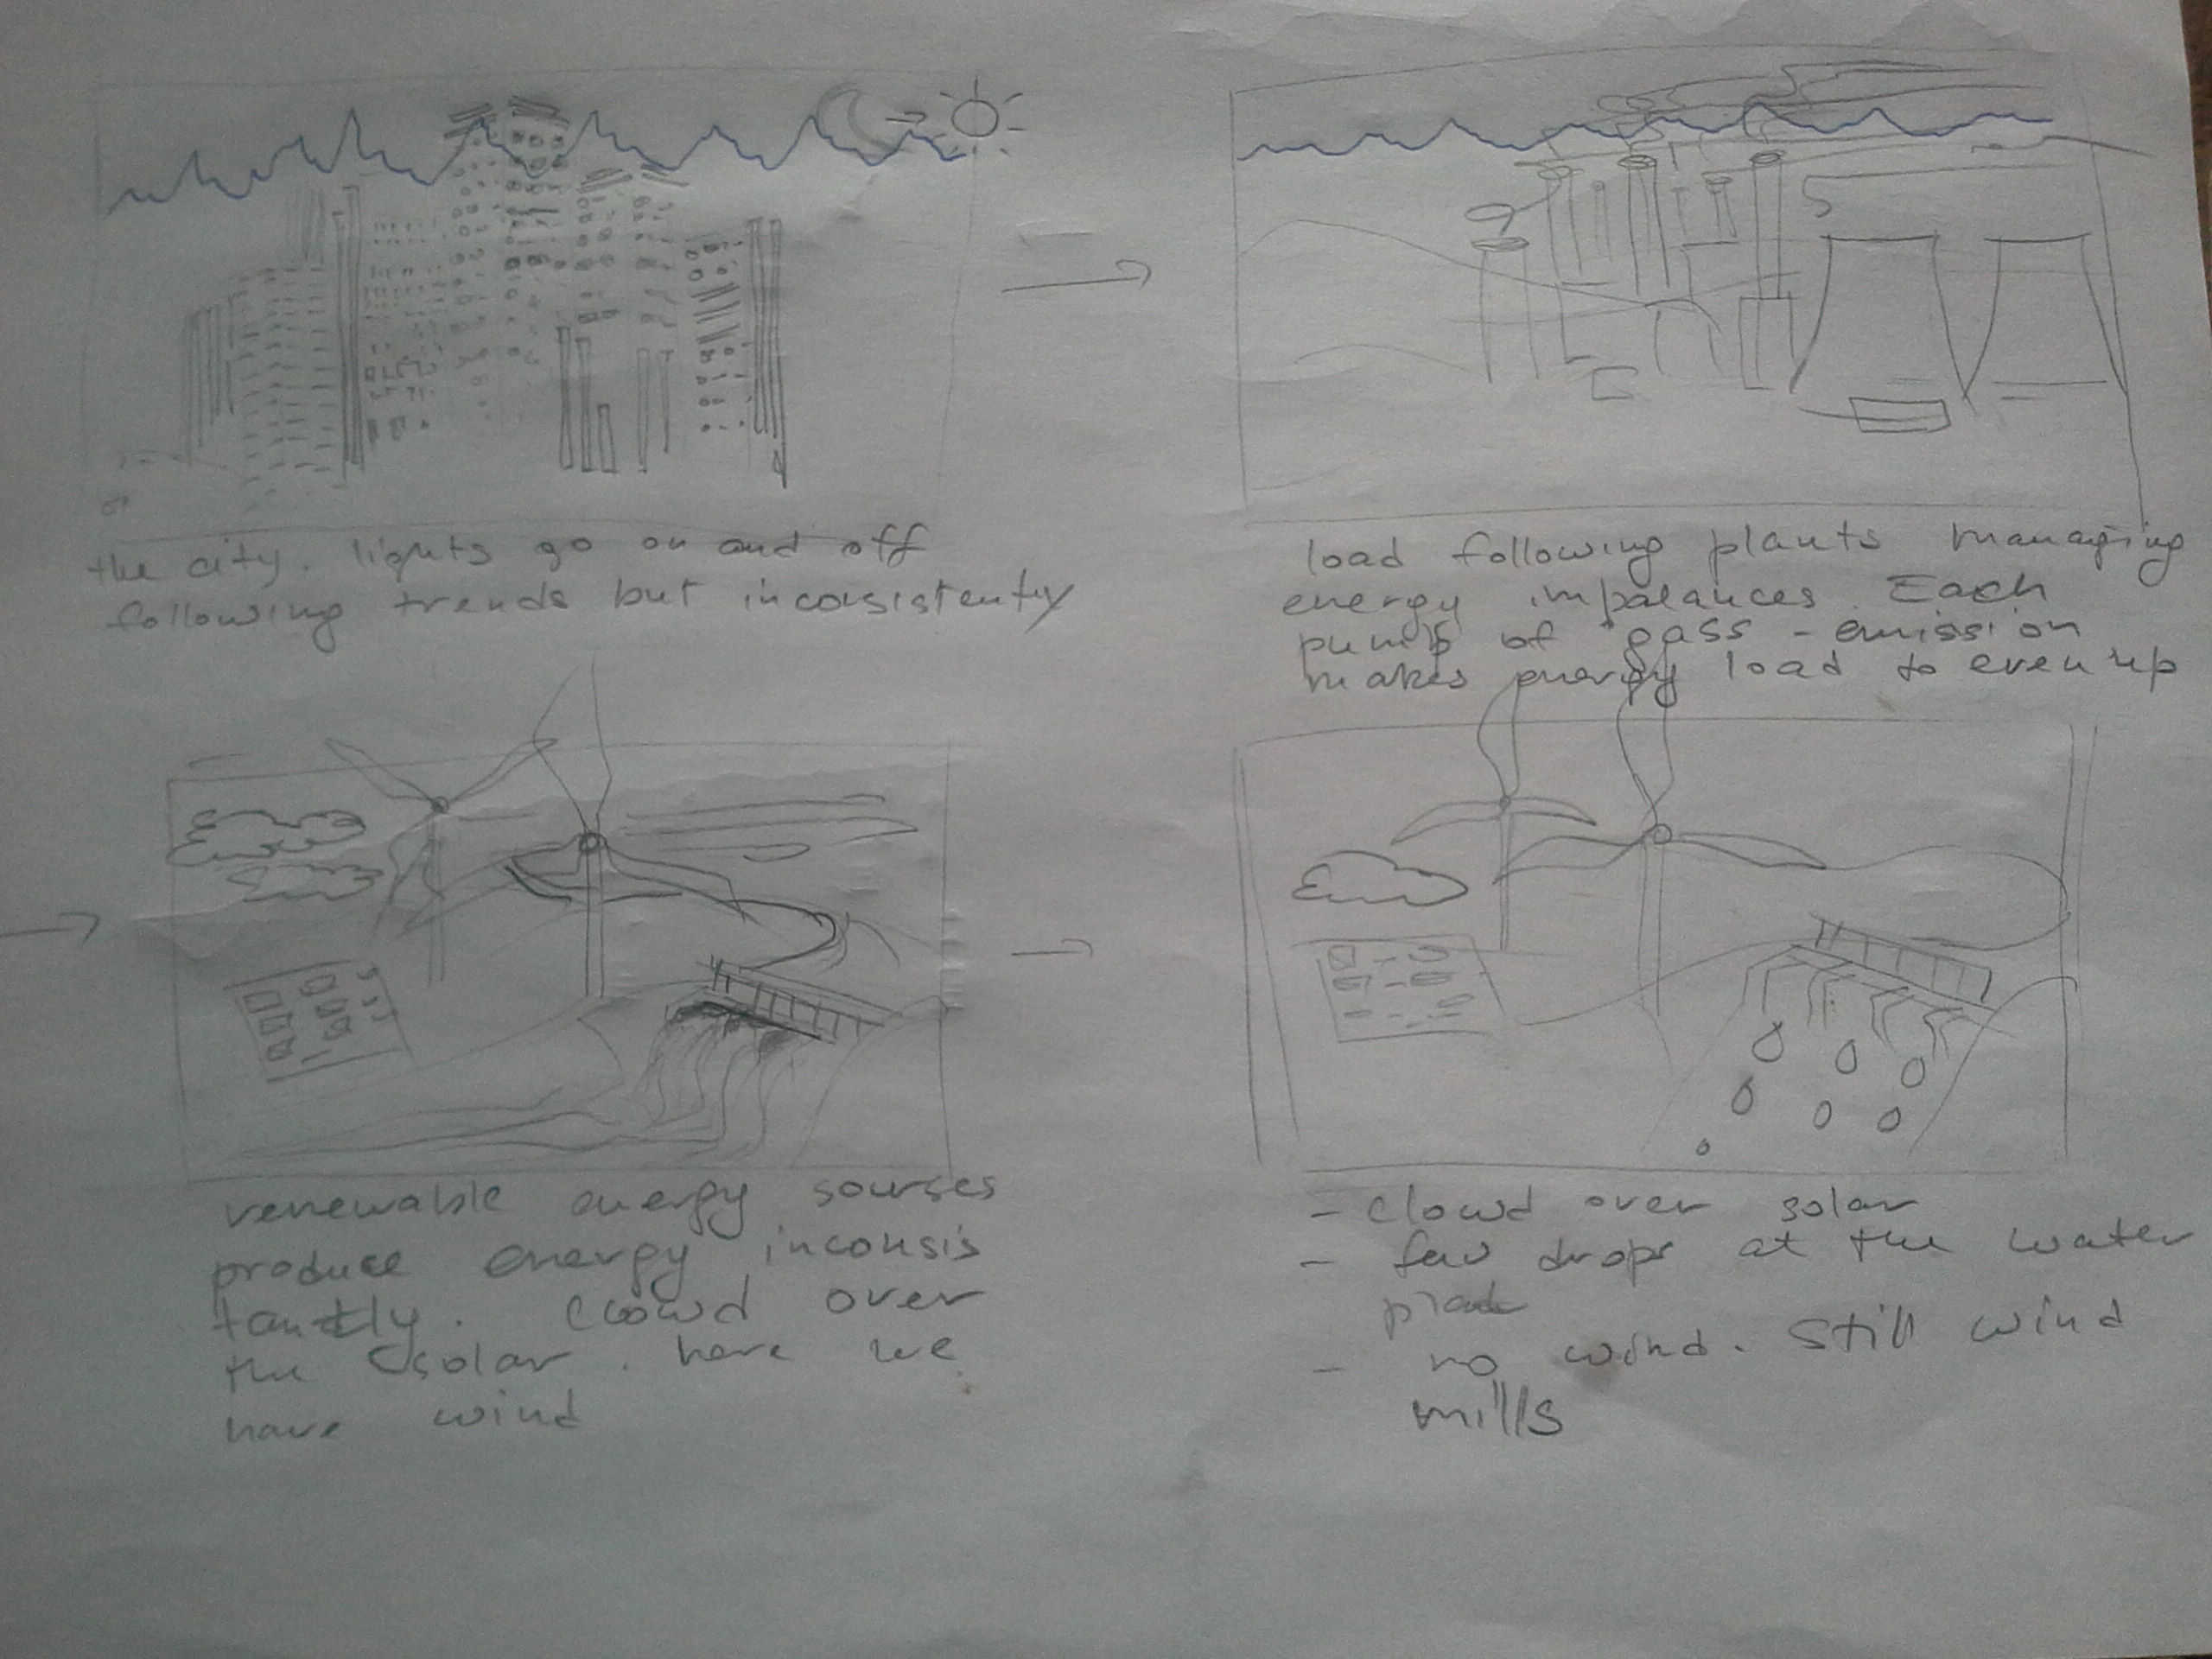 the city. lights go on and off
following trends but inconsistently
load following plants managing
energy imbalances. Each
pump of gass - emission
makes energy load to even up
renewable energy sourses
produce energy inconsis
tantly. Clowd over
the solar. here we
have wind
- clowd over solar
- few drops at the water
- no wind. Still wind
mills